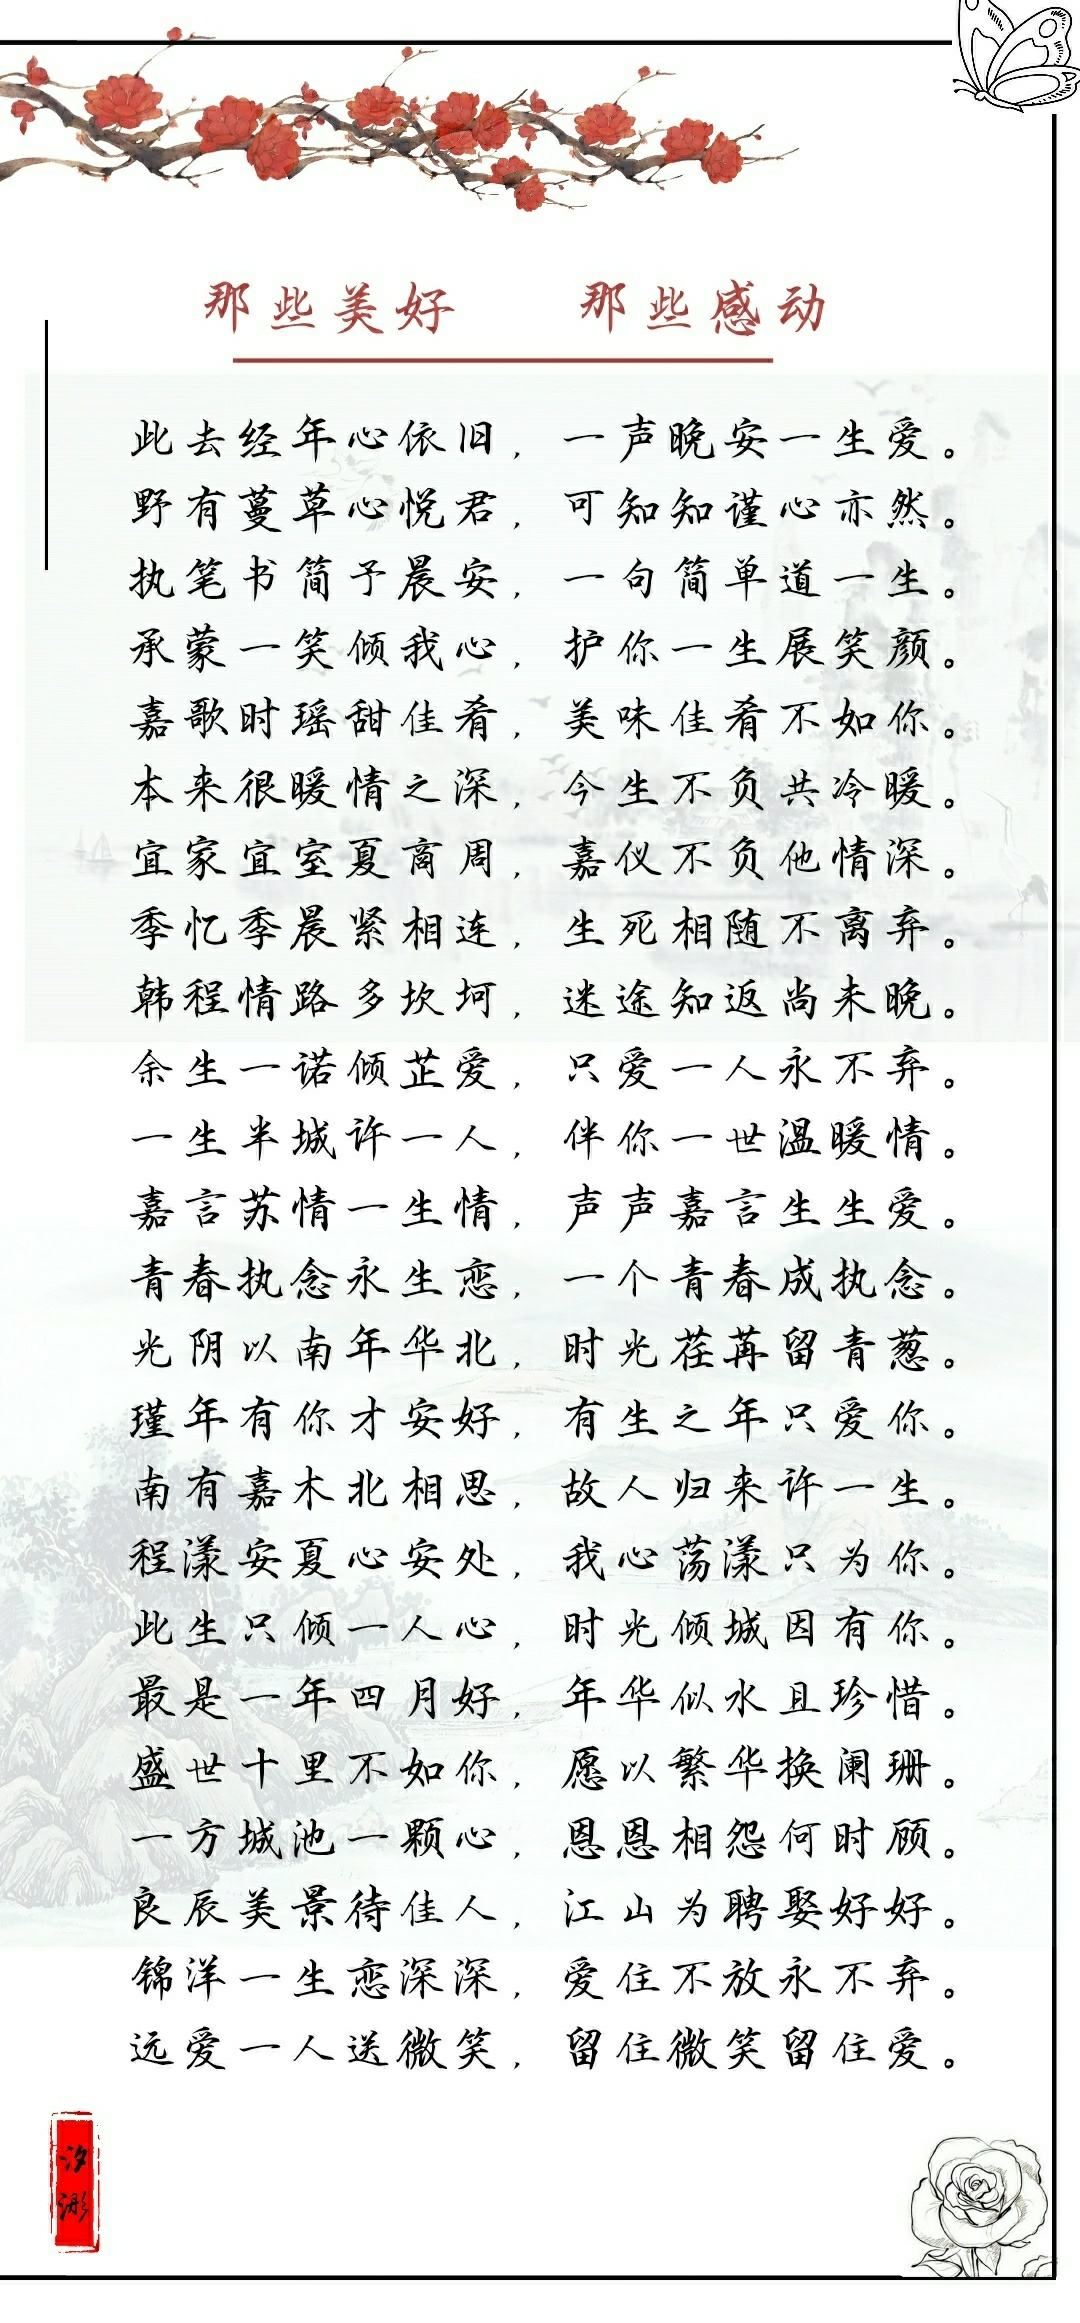 那些美好 那些感动
此去经年心依旧, 一声晚安一生爱。
野有蔓草心悦君, 可知知谨心亦然。
执笔书简予晨安, 一句简单道一生。
承蒙一笑倾我心, 护你一生展笑颜。
嘉歌时瑶甜佳肴, 美味佳肴不如你。
本来很暖情之深, 今生不负共冷暖。
宜家宜室夏商周, 嘉仪不负他情深。
季忆季晨紧相连, 生死相随不离弃。
韩程情路多坎坷, 迷途知返尚未晚。
余生一诺倾芷爱, 只爱一人永不弃。
一生半城许一人, 伴你一世温暖情。
嘉言苏情一生情, 声声嘉言生生爱。
青春执念永生恋, 一个青春成执念。
光阴以南年华北, 时光荏苒留青葱。
瑾年有你才安好, 有生之年只爱你。
南有嘉木北相思, 故人归来许一生。
程漾安夏心安处, 我心荡漾只为你。
此生只倾一人心, 时光倾城因有你。
最是一年四月好, 年华似水且珍惜。
盛世十里不如你, 愿以繁华换阑珊。
一方城池一颗心, 恩恩相怨何时顾。
良辰美景待佳人, 江山为聘娶好好。
锦洋一生恋深深, 爱住不放永不弃。
远爱一人送微笑, 留住微笑留住爱。
汐